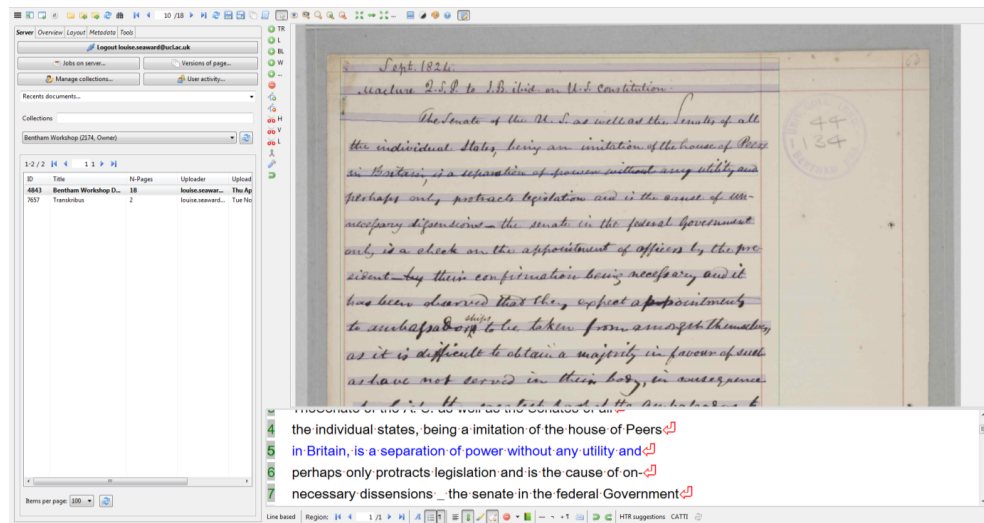 10 /18
Server Overview Layout Metadata Tools
Logout louise.seaward@ucl.ac.uk
Jobs on server... Versions of page...
Manage collections... User activity...
Recents documents...
Collections
Bentham Workshop (2174, Owner)
1-2 / 2 1 1
ID Title N-Pages Uploader Upload
4843 Bentham Workshop D... 18 louise.seawar... Thu Ap
7657 Transkribus 2 louise.seaward... Tue No
Items per page: 100
TR
L
BL
W
...
H
V
L
Sept. 1824.
Maclure Q.S.P. to J.B. ibid. on U.S. constitution.
The Senate of the U.S. as well as the Senates of all
the individual States, being an imitation of the house of Peers
in Britain, is a separation of powers without any utility and
perhaps only protracts legislation and is the cause of un-
necessary dissensions – the senate in the federal Government
only is a check on the appointment of officers by the pre-
sident – by their confirmation being necessary, and it
has been observed that they expect appointments
to ambassadorships to be taken from amongst themselves,
as it is difficult to obtain a majority in favour of such
as have not served in their body, in consequence
44
134
3 TheSenate of the A. S. as well as the Senates of all
4 the individual states, being a imitation of the house of Peers
5 in Britain, is a separation of power without any utility and
6 perhaps only protracts legislation and is the cause of on-
7 necessary dissensions _ the senate in the federal Government
Line based Region: 1 /1 HTR suggestions CATTI